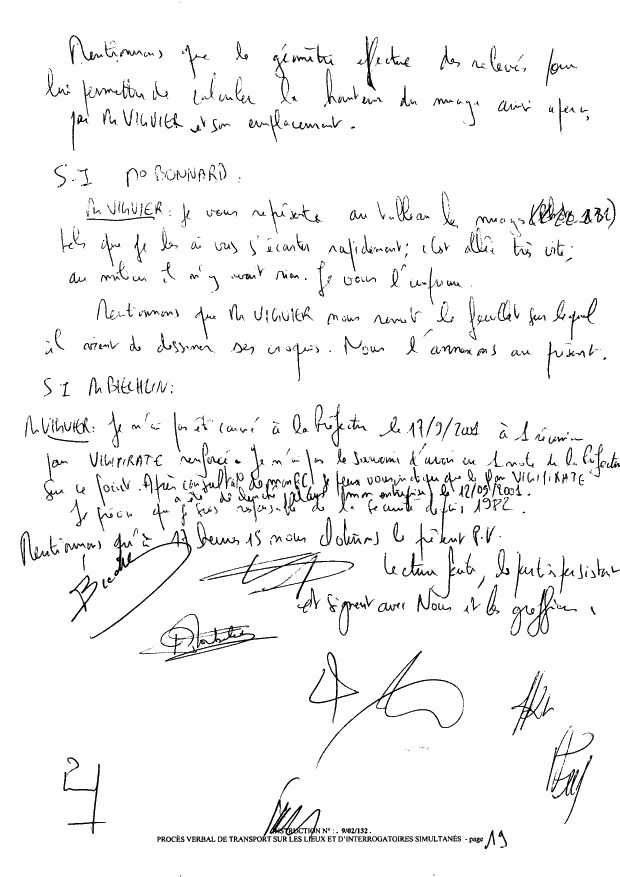 Mentionnons que le géomètre effectue des relevés pour
lui permettre de calculer la hauteur du nuage ainsi aperçu
par M VIGUIER et son emplacement.
S.I Me BONNARD :
M VIGUIER : Je vous représente au tableau les nuages
tels que je les ai vus s'écarter rapidement ; c'est allé très vite ;
au milieu il n'y avait rien. Je vous l'
Mentionnons que M VIGUIER nous remet le feuillet sur lequel
il vient de dessiner ses croquis. Nous l'annexons au présent.
S I M BIECHLIN :
M VIGUIER : Je n'ai pas été convié à la Préfecture le 17/9/2001 à 1 réunion
par VIGIPIRATE renforcé. Je n'ai pas le souvenir d'avoir eu 1 note de la Préfecture
sur ce point. Après consultation de mon PC, je peux vous indiquer que le plan VIGIPIRATE
a été déclenché dans mon entreprise le 12/09/2001.
Je précise que je suis responsable de la sécurité depuis 1982.
Mentionnons qu'à 17 heures 15 nous clôturons le présent P.V.
Lecture faite, les parties persistent
et signent avec Nous et les greffiers.
INSTRUCTION N° : . 9/02/132 .
PROCÈS VERBAL DE TRANSPORT SUR LES LIEUX ET D'INTERROGATOIRES SIMULTANÉS - page 19